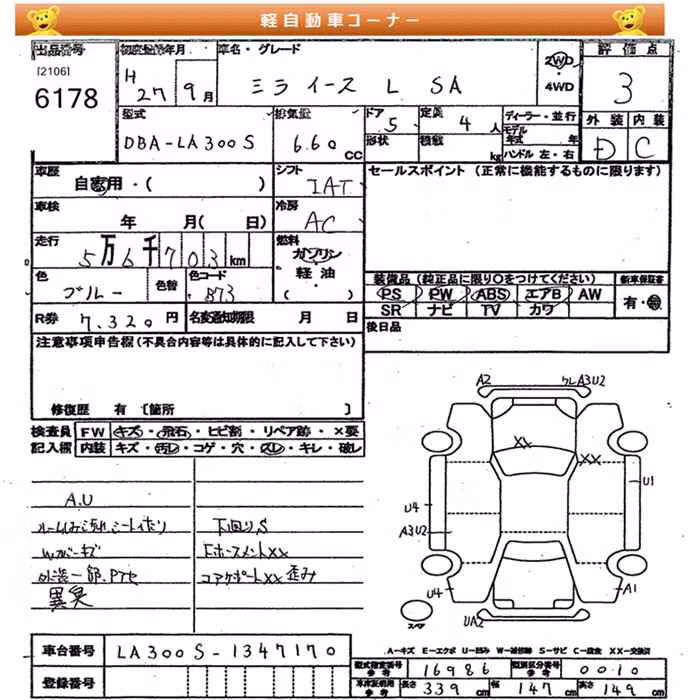 軽自動車コーナー
出品番号
[2106]
6178
初度登録年月
H27年9月
車名・グレード
ミライース L SA
2WD
・
4WD
評価点
3
外装 内装
D C
型式
DBA-LA300S
排気量
6.60
CC
ドア
5
定員
4人
形状
積載
kg
ディーラー・並行
モデル
年式 年
ハンドル 左・右
車歴
自家用・( )
シフト
IAT
車検
年 月( 日)
冷房
AC
走行
5万6千703km
燃料
ガソリン
軽油
( )
色
ブルー
色替
色コード
B73
R券
7,320円
名変通知期限 月 日
セールスポイント (正常に機能するものに限ります)
装備品 (純正品に限り○をつけてください)
PS PW ABS エアB AW
SR ナビ TV カワ
新車保証書
有・無
後日品
注意事項申告欄 (不具合内容等は具体的に記入して下さい)
修復歴 有 [箇所 ]
検査員
記入欄
FW キズ・飛石・ヒビ割・リペア跡・×要
内装 キズ・汚レ・コゲ・穴・スレ・キレ・破レ
A.U
Wカバーキズ
外装一部、Pアセ
異臭
下回りS
コアサポートXX 歪み
A2
クレA3U2
XX
XX
U1
U4
A3U2
U4
A1
UA2
スペア
A-キズ E-エクボ U-凹み W-補修跡 S-サビ C-腐食 XX-交換済
車台番号
LA300S-1347170
登録番号
型式指定番号
参考
16986
類別区分番号
参考
0010
車庫証明用
参考
長さ 339 cm
幅 147 cm
高さ 149 cm